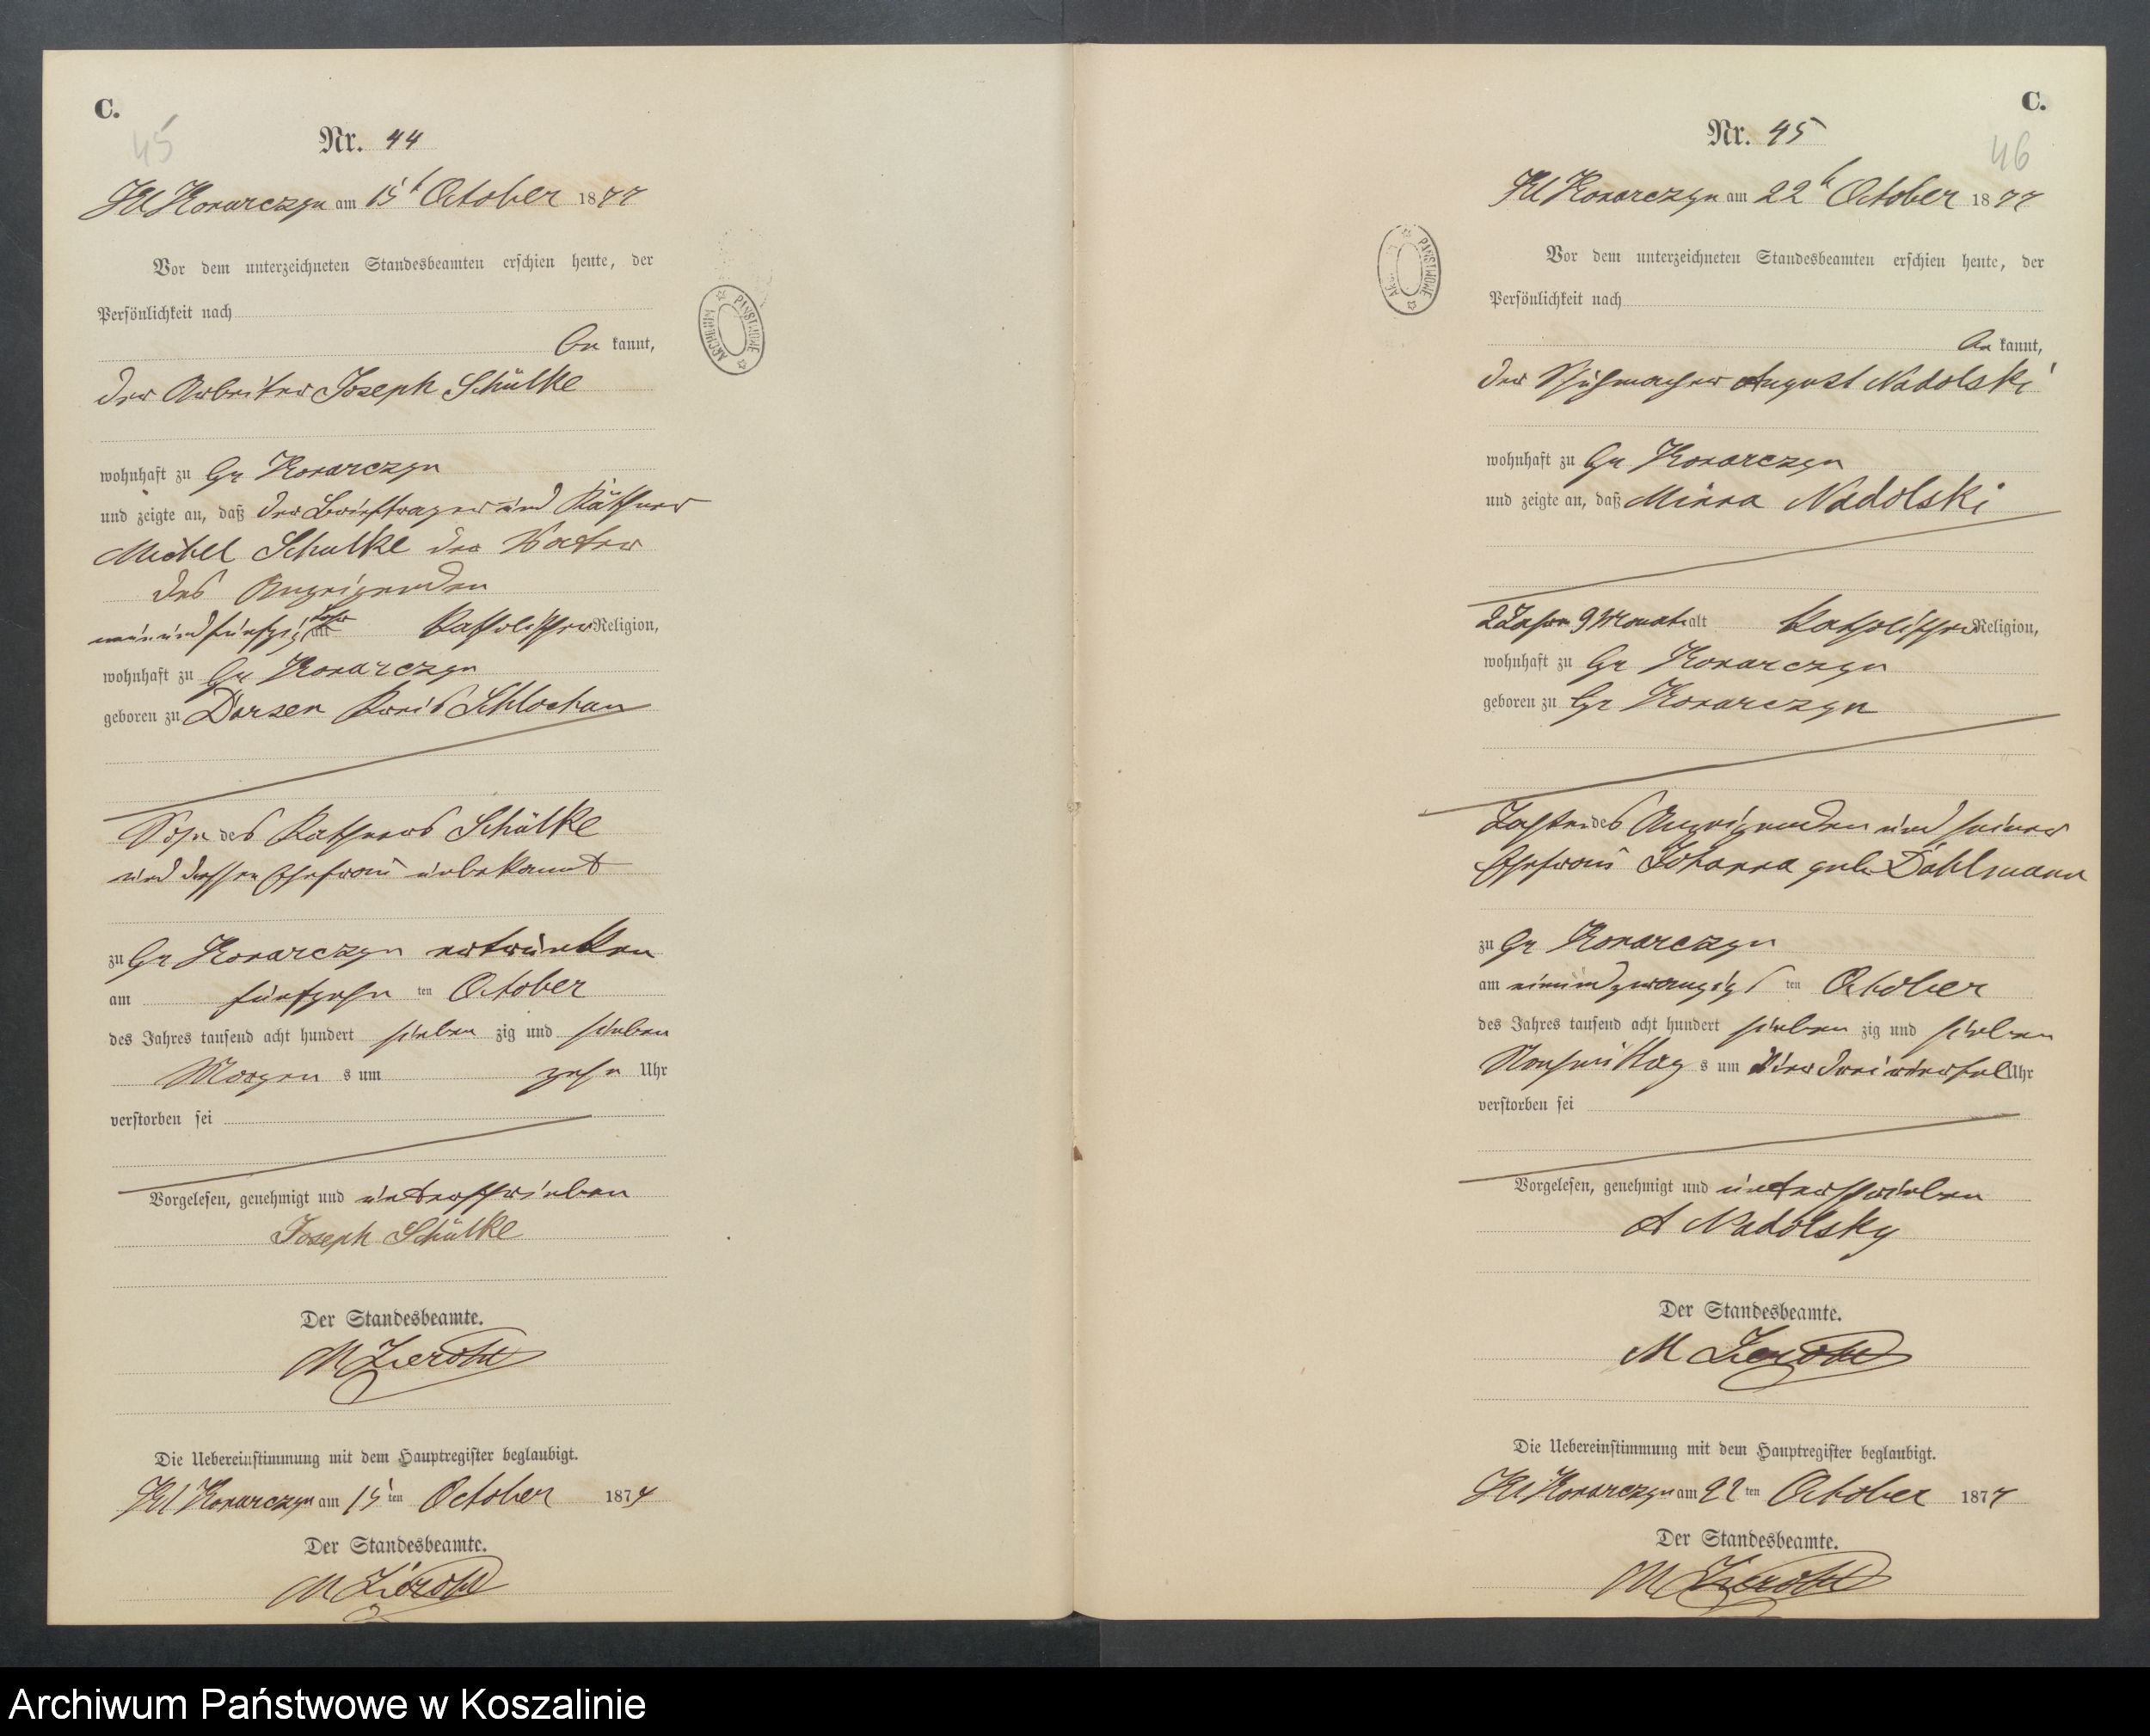 C.
45
Nr. 44
Kl Konarczyn am 15t October 1877
Vor dem unterzeichneten Standesbeamten erschien heute, der
Persönlichkeit nach
be kannt,
der Arbeiter Joseph Schülke
wohnhaft zu Gr Konarczyn
und zeigte an, daß der Briefträger und Käthner
Michel Schulke der Vater
des Anzeigenden
neunundfünfzig Jahr alt Katholischer Religion,
wohnhaft zu Gr Konarczyn
geboren zu Darsen Kreis Schlochau
Sohn des Kathners Schülke
und dessen Ehefrau unbekannt
zu Gr Konarczyn ertrunken
am fünfzehn ten October
des Jahres tausend acht hundert sieben zig und sieben
Morgen s um zehn Uhr
verstorben sei
Vorgelesen, genehmigt und unterschrieben
Joseph Schülke
Der Standesbeamte.
M
Die Uebereinstimmung mit dem Hauptregister beglaubigt.
Kl Konarczyn am 15 ten October 1877
Der Standesbeamte.
M
ARCHIWUM PAŃSTWOWE
C.
46
Nr. 45
Kl Konarczyn am 22t October 1877
Vor dem unterzeichneten Standesbeamten erschien heute, der
Persönlichkeit nach
be kannt,
der Schuhmacher August Nadolski
wohnhaft zu Gr Konarczyn
und zeigte an, daß Minna Nadolski
2 Jahr 9 Monat alt Katholischer Religion,
wohnhaft zu Gr Konarczyn
geboren zu Gr Konarczyn
Tochter des Anzeigenden und seiner
Ehefrau Johanna geb Dahlmann
zu Gr Konarczyn
am einundzwanzigs ten October
des Jahres tausend acht hundert sieben zig und sieben
Nachmittag s um vier dreiviertel Uhr
verstorben sei
Vorgelesen, genehmigt und unterschrieben
A Nadolsky
Der Standesbeamte.
M
Die Uebereinstimmung mit dem Hauptregister beglaubigt.
Kl Konarczyn am 22 ten October 1877
Der Standesbeamte.
M
PAŃSTWOWE
Archiwum Państwowe w Koszalinie